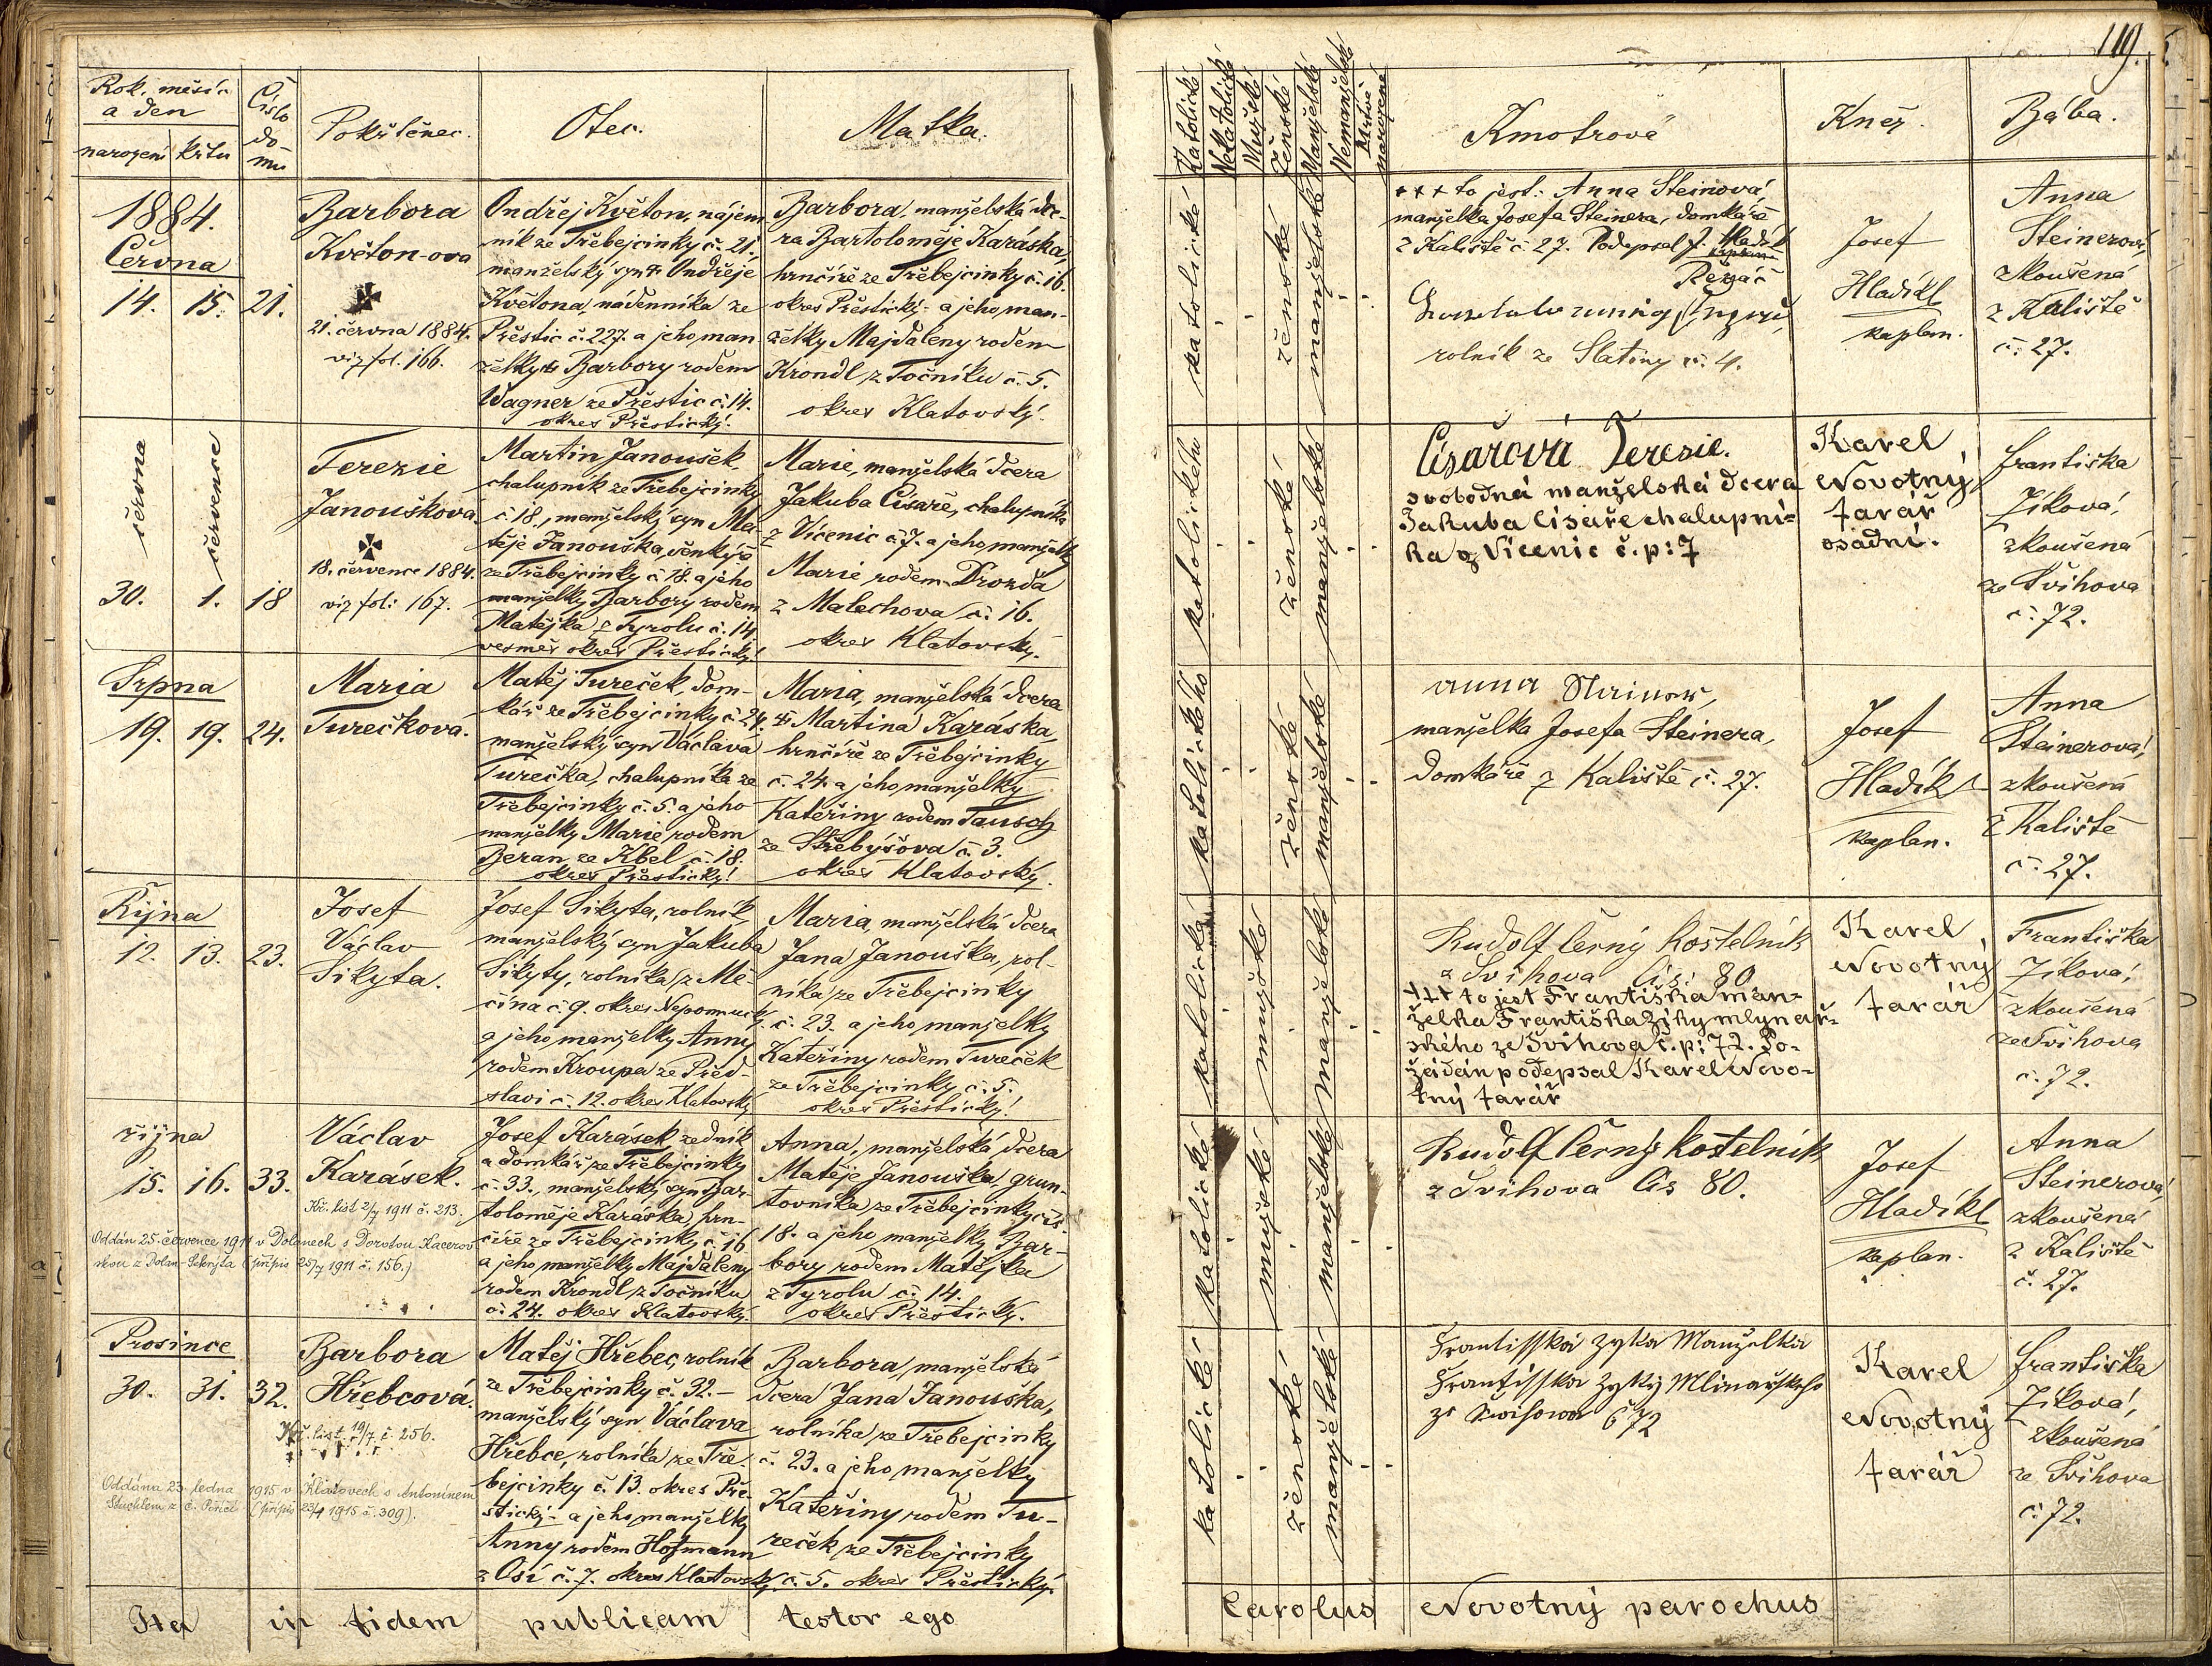 119.
Rok, měsíc
a den
narození křtu
Číslo
do-
mu
Pokřtěnec.
Otec.
Matka.
Katolické
Nekatolické
Mužské
Ženské
Manželské
Nemanželské
Mrtvě
narozené
Kmotrově
Kněz.
Bába.
1884.
Června
14. 15. 21.
Barbora
Květon-ova
21. června 1884.
viz fol. 166.
Ondřej Květon, nájem-
ník ze Třebejcinky č. 21.
manželský syn Ondřeje
Květona, nádenníka ze
Přeštic č. 227. a jeho man
želky Barbory rodem
Wagner ze Přeštic č. 14.
okres Přeštický.
Barbora, manželská dce-
ra Bartoloměje Karáska,
hrnčíře ze Třebejcinky č. 16.
okres Přeštický - a jeho man-
želky Majdaleny rodem
Krondl z Točníku č. 5.
okres Klatovský.
katolické
ženské
manželské
+++ to jest: Anna Steinová
manželka Josefa Steinera, domkáře
z Kaliště č. 27. Podepsal J.
Řezáč
rolník ze Slatiny č. 4.
Josef
Hladík
kaplan.
Anna
Steinerová,
zkoušená
z Kaliště
č. 27.
června
července
30. 1. 18
Terezie
Janoušková
18. července 1884.
viz fol: 167.
Martin Janoušek,
chalupník ze Třebejcinky
č. 18., manželský syn Ma-
těje Janouška, šenkýře
ze Třebejcinky č. 18. a jeho
manželky Barbory rodem
Matějka z Tyrolu č. 14
vesměs okres Přeštický!
Marie, manželská dcera
Jakuba Císaře, chalupníka
z Vícenic č. 7. a jeho manželky
Marie rodem Drozda
z Malechova č. 16.
okres Klatovský.
katolického
ženské
manželské
Císařová Terezie.
svobodná manželská dcera
Jakuba Císaře chalupní-
ka z Vícenic č. p: 7
Karel
Novotný
farář
osadní.
Františka
Zíková,
zkoušená
ze Švihova
č. 72.
Srpna
19. 19. 24.
Maria
Turečková.
Matěj Tureček, dom-
kář ze Třebejcinky č. 24.
manželský syn Václava
Turečka, chalupníka ze
Třebejcinky č. 5. a jeho
manželky Marie rodem
Beran ze Kbel č. 18.
okres Přeštický!
Maria, manželská dcera
Martina Karáska
hrnčíře ze Třebejcinky
č. 24. a jeho manželky
Kateřiny rodem Tausch
ze Střebýšova č. 3.
okres Klatovský.
katolického
ženské
manželské
Anna
manželka Josefa Steinera,
domkáře z Kaliště č. 27.
Josef
Hladík
kaplan.
Anna
Steinerová,
zkoušená
z Kaliště
č. 27.
Října
12. 13. 23.
Josef
Václav
Sikyta.
Josef Sikyta, rolník,
manželský syn Jakuba
Sikyty, rolníka z Mě-
čína č. 9. okres Nepomucký
a jeho manželky Anny
rodem Kroupa ze Před-
slavi č. 12. okres Klatovský
Maria, manželská dcera
Jana Janouška, rol-
níka ze Třebejcinky
č. 23. a jeho manželky
Kateřiny rodem Tureček
ze Třebejcinky č. 5.
okres Přeštický!
katolická
mužské
manželské
Rudolf Černý kostelník
z Švihova čís. 80
+++ to jest Františka man-
želka Františka Ziky mlynář-
ského ze Švihova č. p: 72. Po-
žádán podepsal Karel Novo-
tný farář
Karel
Novotný
farář
Františka
Zíková,
zkoušená
ze Švihova
č. 72.
října
15. 16. 33.
Václav
Karásek.
Kř. list 2/7 1911 č. 213.
Oddán 25. července 1911 v Dolanech s Dorotou Kacerov
skou z Dolan-Sekryta (přípis 25/7 1911 č. 156.)
Josef Karásek, zedník
a domkář ze Třebejcinky
č. 33., manželský syn Bar-
toloměje Karáska, hrn-
číře ze Třebejcinky č. 16
a jeho manželky Majdaleny
rodem Krondl z Točníku
č. 24. okres Klatovský.
Anna, manželská dcera
Matěje Janouška, grun-
tovníka ze Třebejcinky čís
18. a jeho manželky Bar-
bory rodem Matějka
z Tyrolu č. 14.
okres Přeštický.
katolické
mužské
manželské
Rudolf Černý kostelník
z Švihova čís 80.
Josef
Hladík
kaplan.
Anna
Steinerová,
zkoušená
z Kaliště
č. 27.
Prosince
30. 31. 32.
Barbora
Hřebcová.
Kř. list 19/7 č. 256.
Oddána 23. ledna 1915 v Klatovech s Antonínem
(přípis 23/4 1915 č. 309).
Matěj Hřebec, rolník
ze Třebejcinky č. 32. -
manželský syn Václava
Hřebce, rolníka ze Tře-
bejcinky č. 13. okres Pře-
štický - a jeho manželky
Anny rodem Hofmann
z Osí č. 7. okres Klatovský
Barbora, manželská
dcera Jana Janouška,
rolníka ze Třebejcinky
č. 23. a jeho manželky
Kateřiny rodem Tu-
reček ze Třebejcinky
č. 5. okres Přeštický.
katolické
ženské
manželské
Frantisska Zyka Manželka
Frantisska Zyky Mlinařskeho
ze Swihowa č 72
Karel
Novotný
farář
Františka
Zíková,
zkoušená
ze Švihova
č. 72.
Ita in fidem publicam testor ego
Carolus Novotný parochus